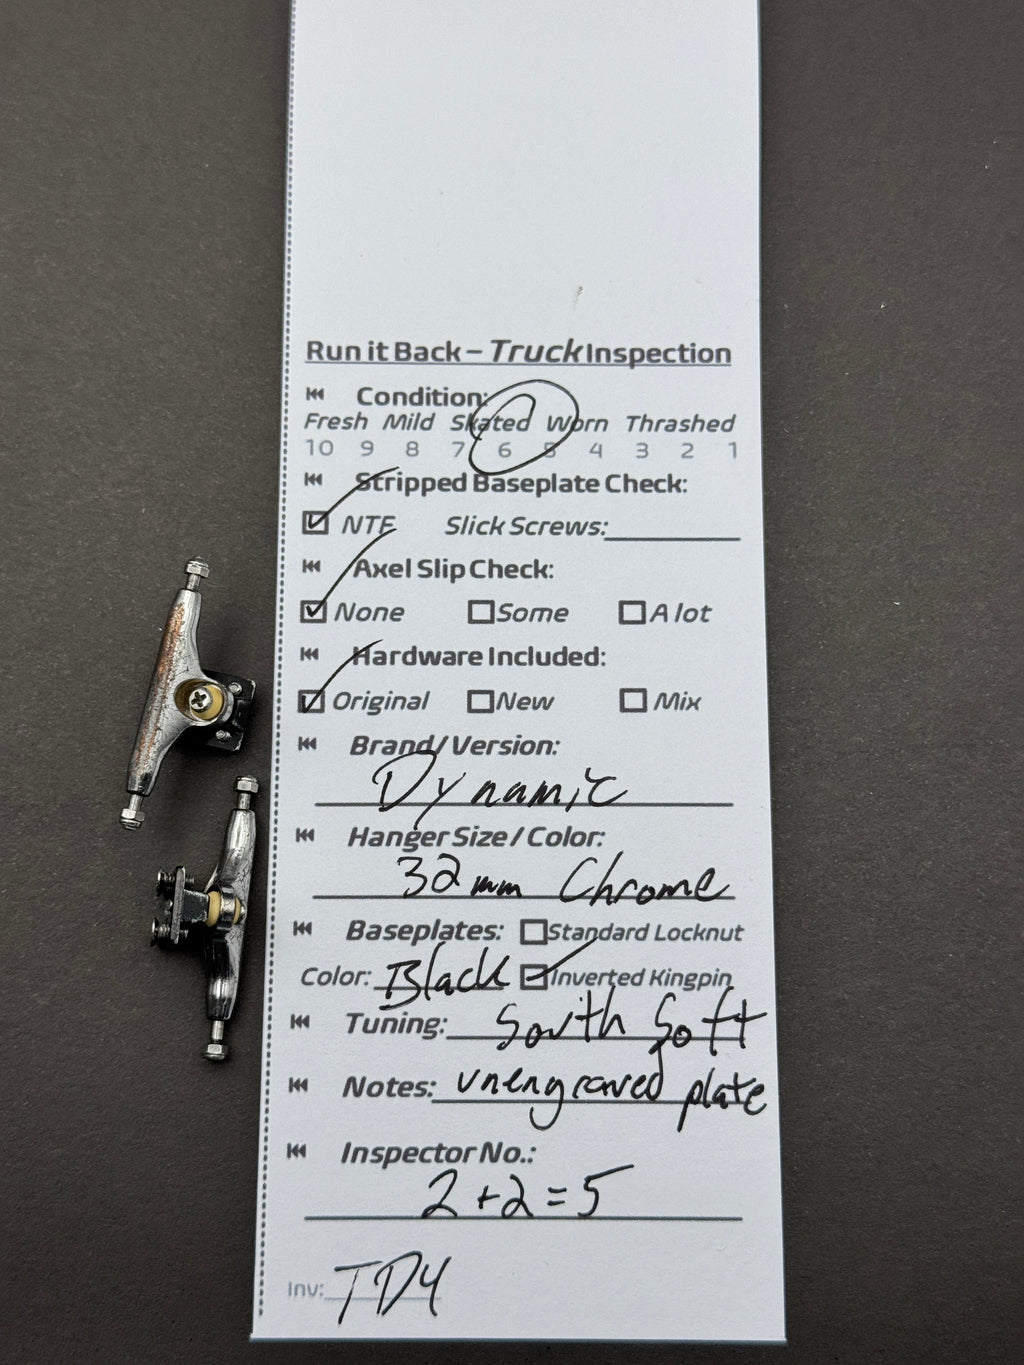 Run it Back – Truck Inspection
Condition:
Fresh Mild Skated Worn Thrashed
10 9 8 7 6 5 4 3 2 1
Stripped Baseplate Check:
NTF Slick Screws:
Axel Slip Check:
None Some A lot
Hardware Included:
Original New Mix
Brand/Version:
Dynamic
Hanger Size / Color:
32mm Chrome
Baseplates: Standard Locknut
Color: Black Inverted Kingpin
Tuning: South Soft
Notes: unengraved plate
Inspector No.:
2+2=5
Inv: TD4